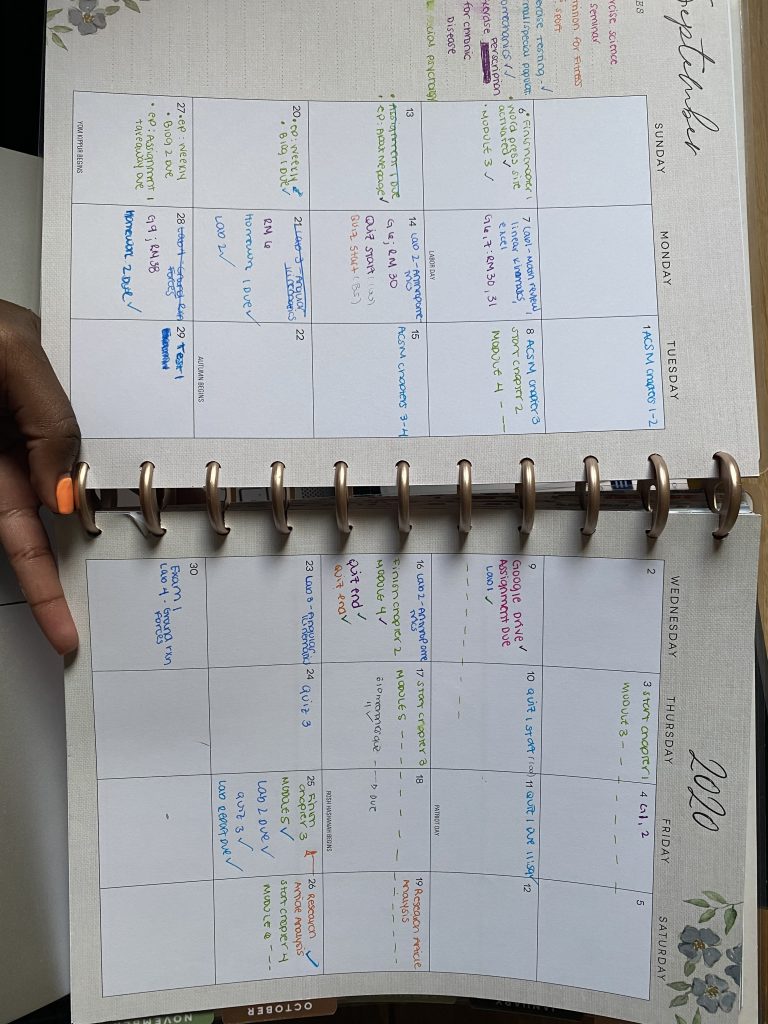 September
2020
SUNDAY
MONDAY
TUESDAY
WEDNESDAY
THURSDAY
FRIDAY
SATURDAY
1 ACSM Chapters 1-2
2
3 Start Chapter 1
Module 3
4 G1, 2
5
6 • Finish Chapter 1
• Word press site
activated ✓
• Module 3 ✓
7 Lab 1 - Math review,
linear kinematics,
excel
G6,7; RM 30, 31
LABOR DAY
8 ACSM Chapter 3
Start Chapter 2
Module 4
9 Google Drive ✓
Assignment Due
Lab 1 ✓
10 Quiz 1 Start (100)
11 Quiz 1 Due 11:59
PATRIOT DAY
12
13
• Assignment 1 Due
• EP: About me page ✓
14 Lab 2 - Anthropome
trics
G6; RM 30
Quiz Start
Quiz Start
15
ACSM Chapters 3-4
16 Lab 2 - Anthropome
trics
Finish Chapter 2
Module 4 ✓
Quiz end ✓
Quiz end ✓
17 Start Chapter 3
Module 5
Due
18
ROSH HASHANAH BEGINS
19 Research Article
Analysis
20 • EP: Weekly
• Blog 1 Due ✓
21 Lab 3 - Angular
Kinematics
RM 6
Homework 1 Due ✓
Lab 2 ✓
22
AUTUMN BEGINS
23 Lab 3 - Angular
Kinematics
24 Quiz 3
25 Finish
Chapter 3
Module 5 ✓
Lab 2 Due ✓
Quiz 3 ✓
Lab report Due ✓
26 Research ✓
Article Analysis
Start Chapter 4
Module 6
27 • EP: Weekly
• Blog 2 Due
• EP: Assignment 1
Takeaway Due
YOM KIPPUR BEGINS
28 Lab 4 - Ground Rxn
Forces
G9; RM 98
Homework 2 Due ✓
29 Test 1
30
Exam 1
Lab 4 - Ground rxn
Forces
Exercise science
seminar
Nutrition for Fitness
+ Sport
Exercise Testing - ✓
Normal/special populat
Biomechanics ✓✓
Exercise Perscription
for chronic
Disease
social psychology
OCTOBER
NOVEMBER
JANUARY